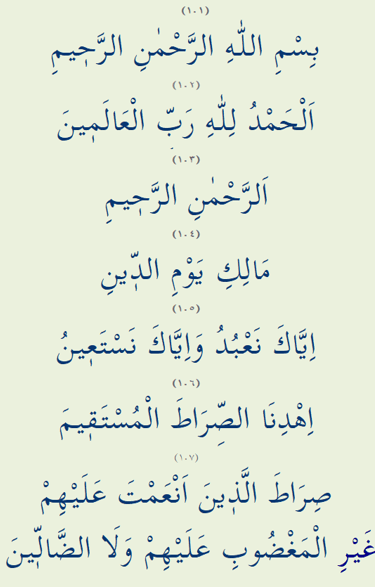 (١٠١)
بِسْمِ اللّٰهِ الرَّحْمٰنِ الرَّحٖيمِ
(١٠٢)
اَلْحَمْدُ لِلّٰهِ رَبِّ الْعَالَمٖينَ
(١٠٣)
اَلرَّحْمٰنِ الرَّحٖيمِ
(١٠٤)
مَالِكِ يَوْمِ الدّٖينِ
(١٠٥)
اِيَّاكَ نَعْبُدُ وَاِيَّاكَ نَسْتَعٖينُ
(١٠٦)
اِهْدِنَا الصِّرَاطَ الْمُسْتَقٖيمَ
(١٠٧)
صِرَاطَ الَّذٖينَ اَنْعَمْتَ عَلَيْهِمْ
غَيْرِ الْمَغْضُوبِ عَلَيْهِمْ وَلَا الضَّالّٖينَ